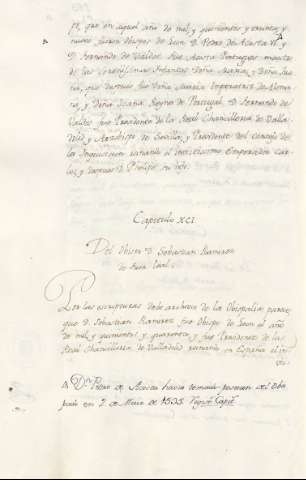 que en aquel año de mil, y quinientos y treinta, y
nueve fueron obispos de Leon D. Pedro de Acosta VI. y
D. Fernando de Valdes. Fue Acosta Portugues maestro
de las Infantas Doña Maria, y Doña Jua-
na, que despues fue Doña Maria Emperatriz de Alema-
nia, y Doña Juana Reyna de Portugal. D. Fernando de
Valdes fue Presidente de la Real Chancilleria de Valla-
dolid y Arzobispo de Sevilla, y Presidente del Consejo de
la Inquisicion reinando el Emperador Car-
los, y despues D. Phelipe su hijo.
Capitulo XCI.
Del Obispo D. Sebastian Ramirez
de Fuen Leal.
Por las escripturas de el archivo de la Obispalia parece
que D. Sebastian Ramirez fue Obispo de Leon el año
de mil, y quinientos, y quarenta, y fue Presidente de la
Real Chancilleria de Valladolid reinando en España el
Dn Pedro de Acosta havia tomado posesion del Obis
pado en 2 de Maio de 1535